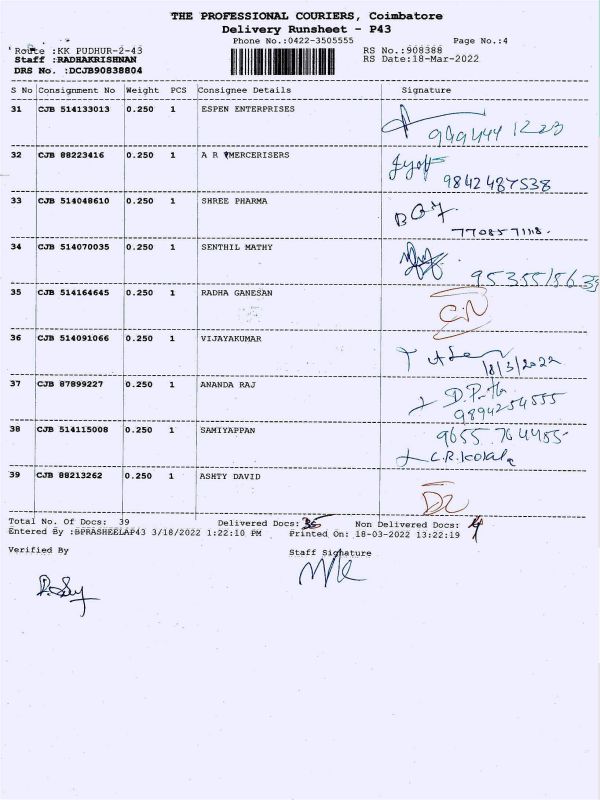 THE PROFESSIONAL COURIERS, Coimbatore
Delivery Runsheet - P43
Phone No.:0422-3505555 Page No.:4
Route :KK PUDHUR-2-43 RS No.:908388
Staff :RADHAKRISHNAN RS Date:18-Mar-2022
DRS No. :DCJB90838804
S No Consignment No Weight PCS Consignee Details Signature
31 CJB 514133013 0.250 1 ESPEN ENTERPRISES
32 CJB 88223416 0.250 1 A R MERCERISERS
9842487538
33 CJB 514048610 0.250 1 SHREE PHARMA
7708571118.
34 CJB 514070035 0.250 1 SENTHIL MATHY
35 CJB 514164645 0.250 1 RADHA GANESAN
36 CJB 514091066 0.250 1 VIJAYAKUMAR
18/3/2022
37 CJB 87899227 0.250 1 ANANDA RAJ
9894254555
38 CJB 514115008 0.250 1 SAMIYAPPAN
9655 764485
C.R.Kokala
39 CJB 88213262 0.250 1 ASHTY DAVID
Total No. Of Docs: 39 Delivered Docs: 35 Non Delivered Docs: 4
Entered By :BPRASHEELAP43 3/18/2022 1:22:10 PM Printed On: 18-03-2022 13:22:19
Verified By Staff Signature